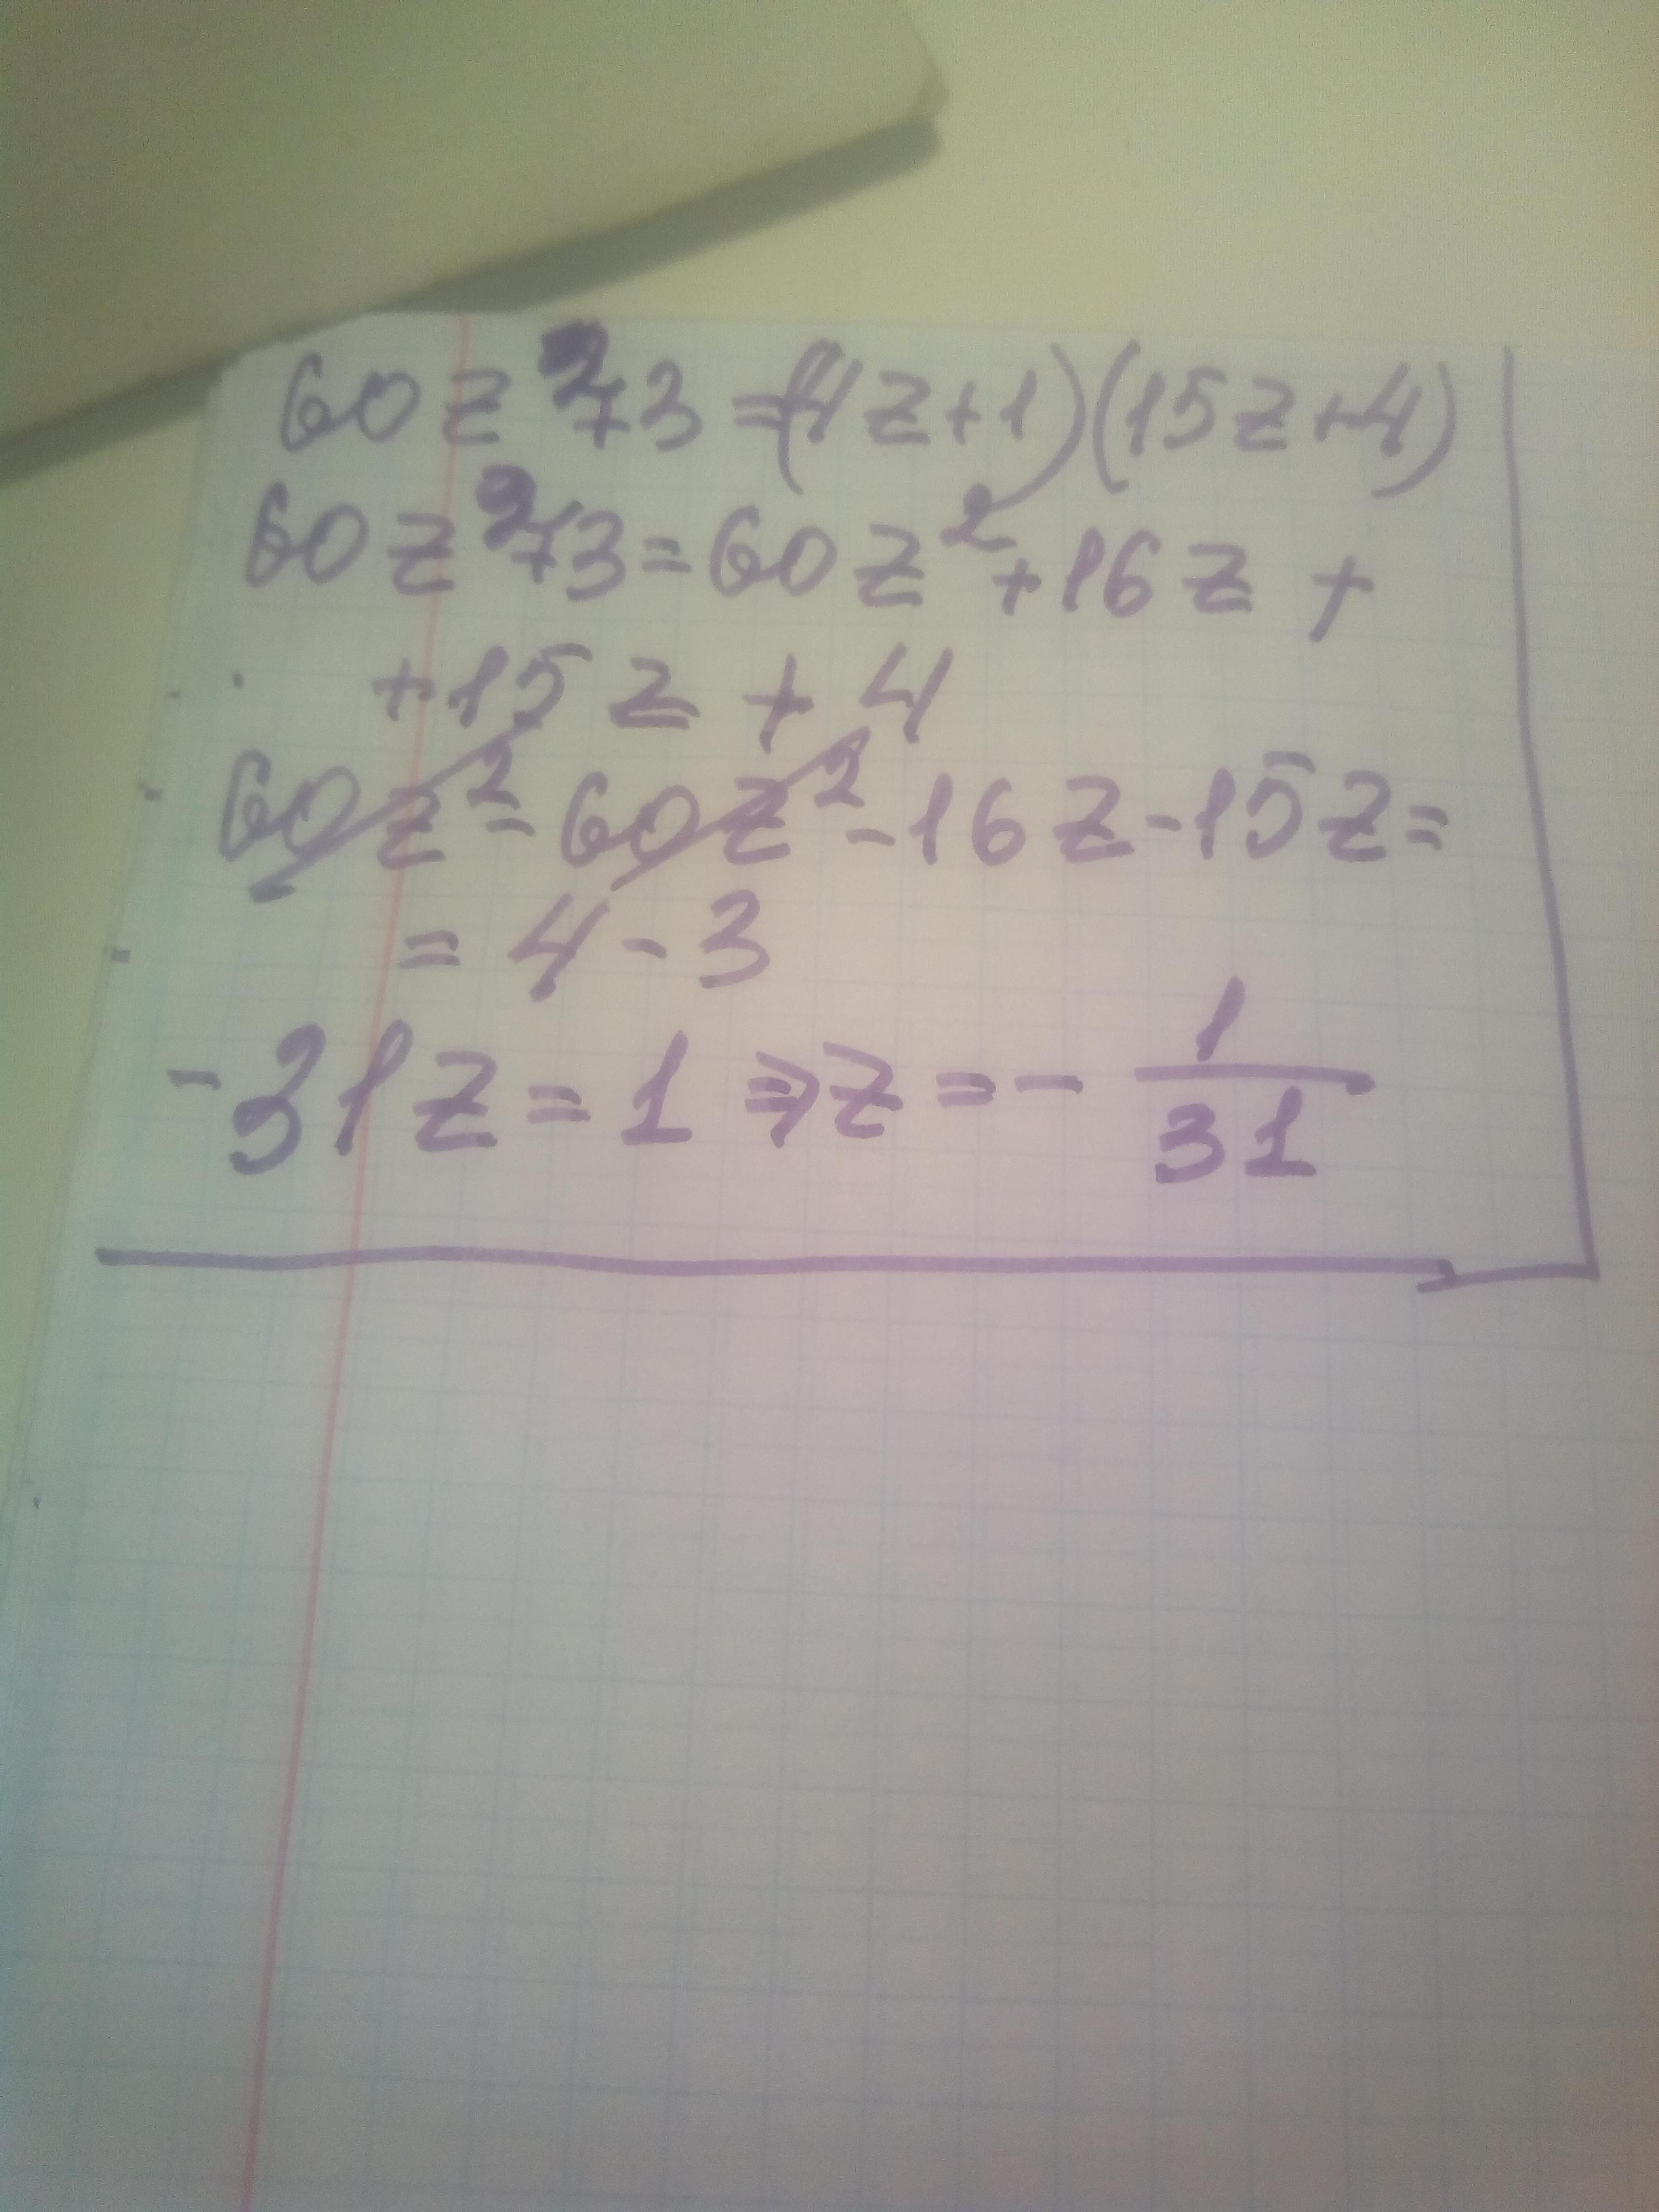 60z²+3=(4z+1)(15z+4)
60z²+3=60z²+16z+
+15z+4
60z²-60z²-16z-15z=
=4-3
-31z=1⇒z=-1/31